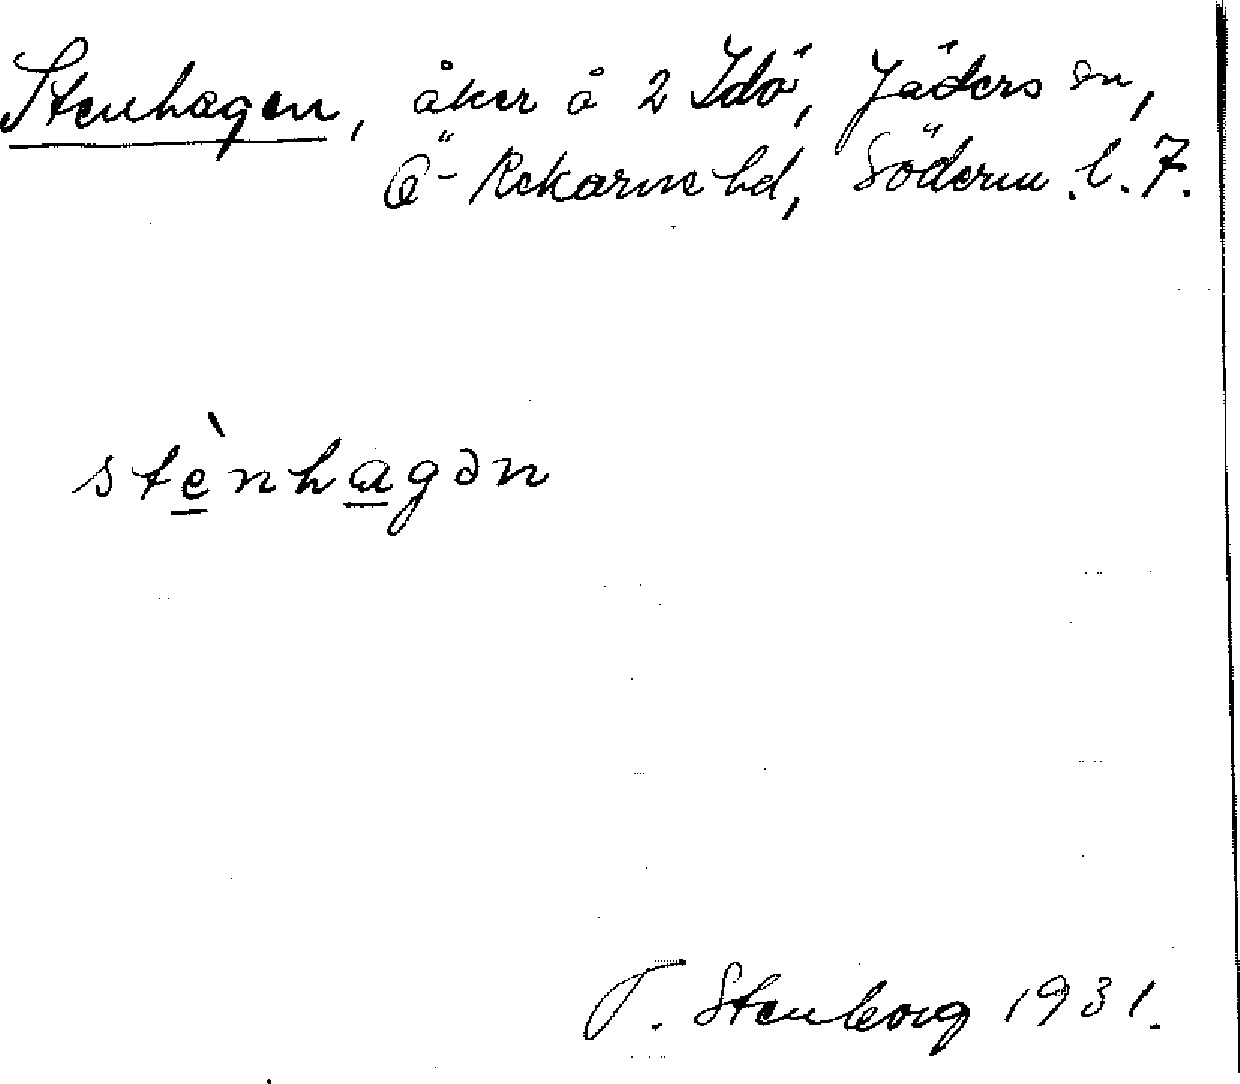 Stenhagen, åker å 2 Idö, Jäders sn,
Ö-Rekarne hd, Söderm. l. 7.
stènhagən
T. Stenborg 1931.